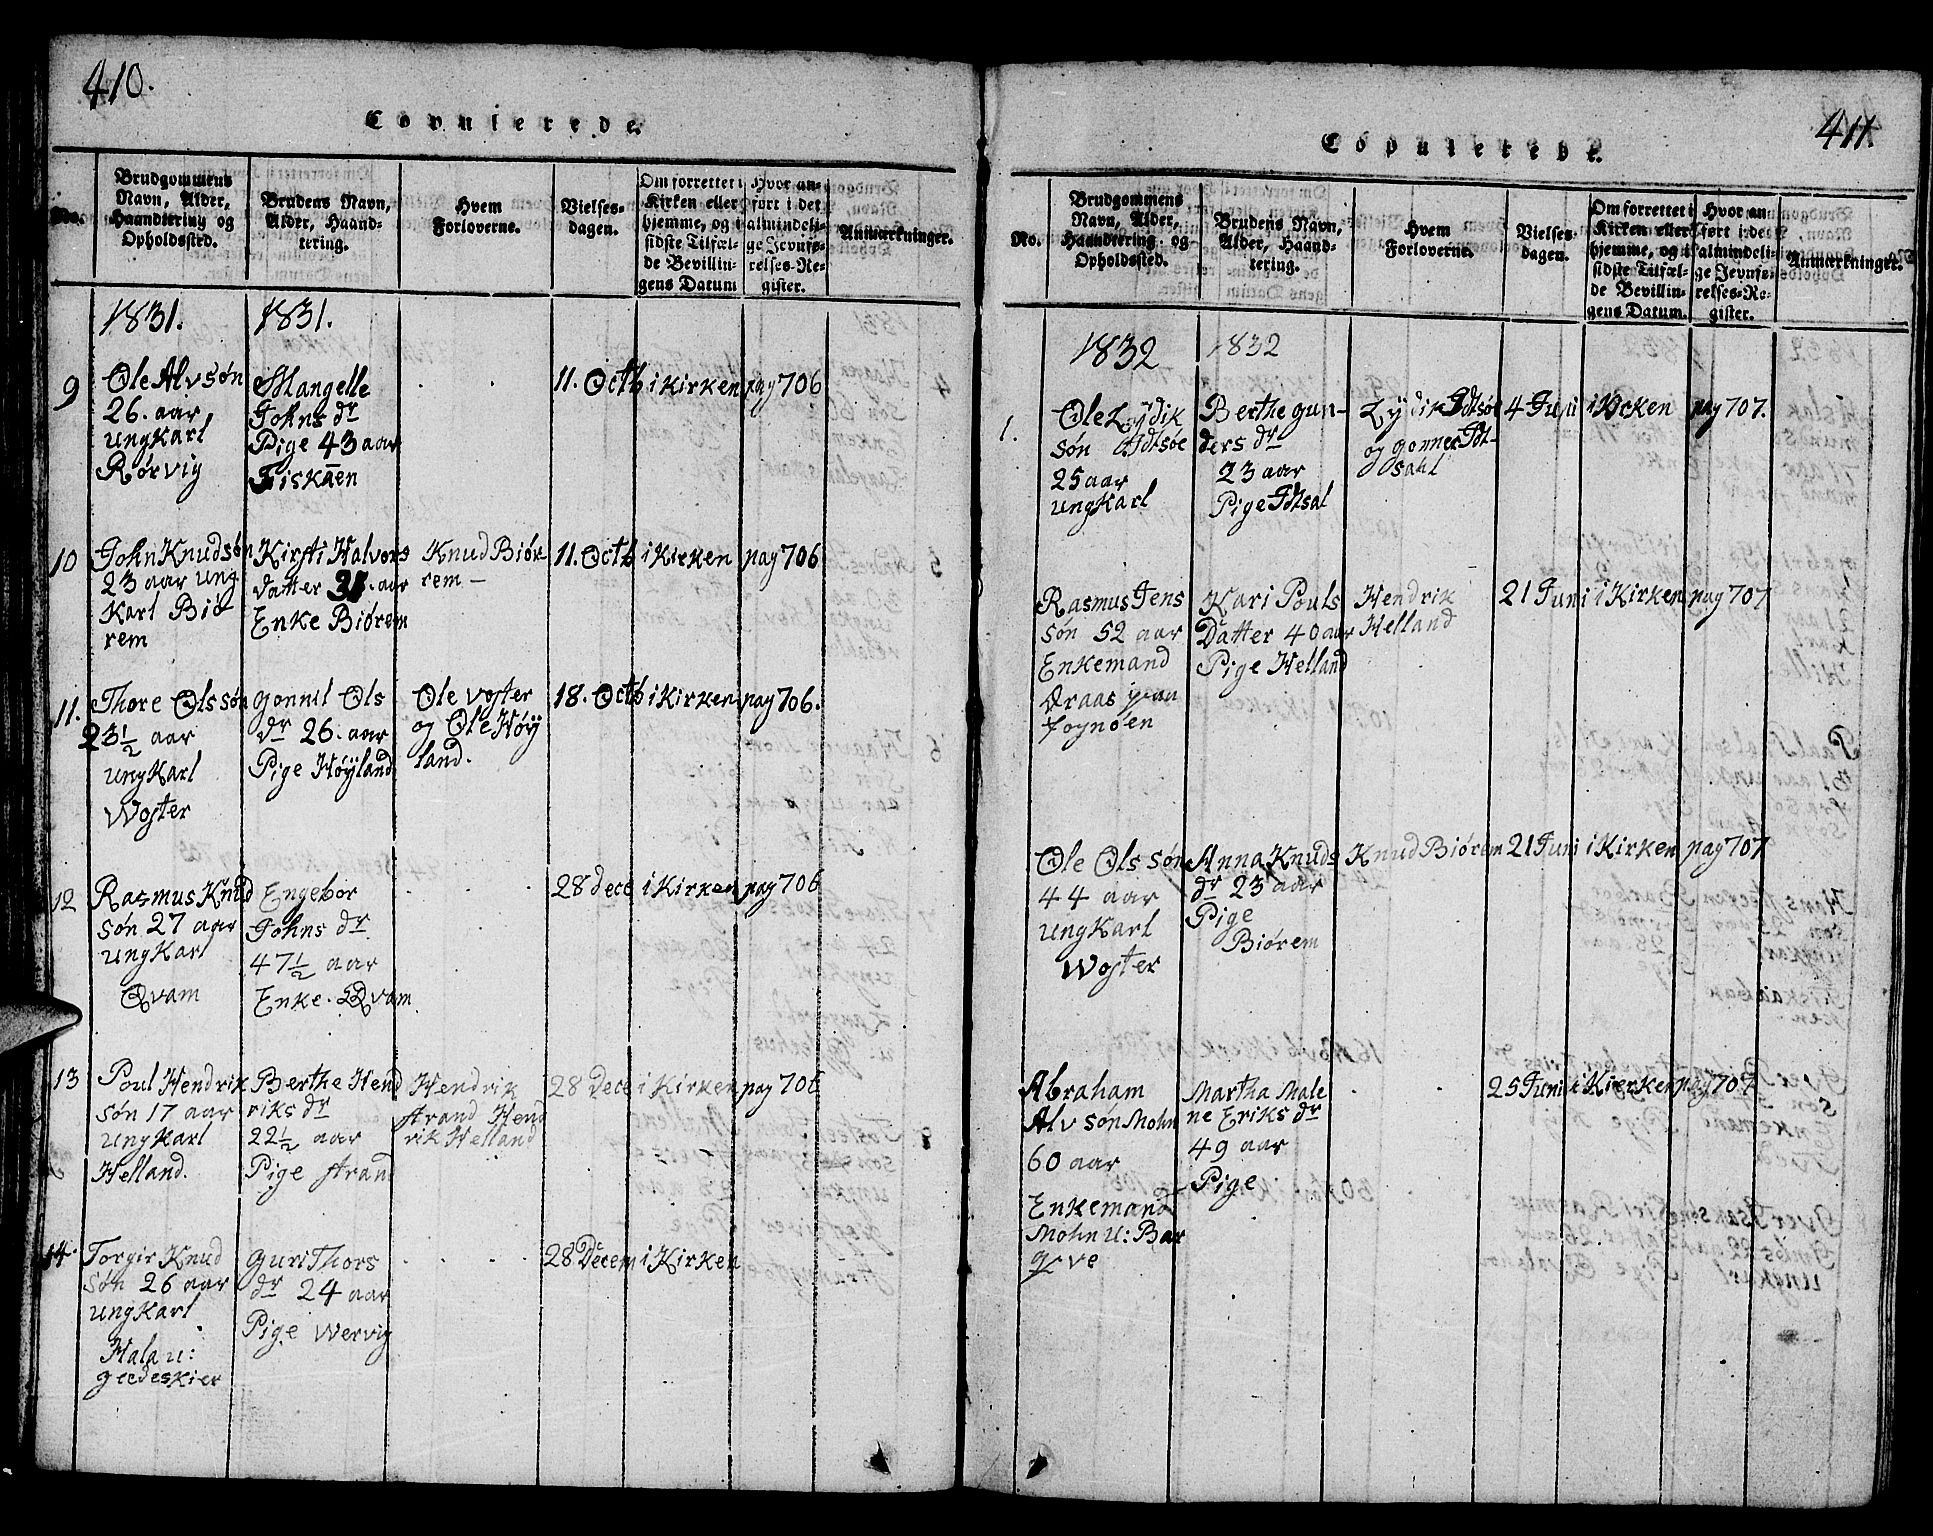 410.
Copulerede.
No.
Brudgommens
Navn, Alder,
Haandtering og
Opholdssted.
Brudens Navn,
Alder, Haand-
tering.
Hvem
Forloverne.
Vielses-
dagen.
Om forrettet i
Kirken eller
hjemme, og i
sidste Tilfæl-
de Bevillin-
gens Datum
Hvor an-
ført i det
almindeli-
ge Jevnfø-
relses-Re-
gister.
Anmærkninger.
1831. 1831.
9
Ole Alvsøn
26. aar
ungKarl
Rørvig
Mangelle
Johns dr
Pige 43 aar
Fiskaaen
11. Octb i Kirken pag 706
10
John Knudsøn
23 aar ung
Karl Biø
rem
Kirsti Halvors
datter 31. aar
Enke Biørem
Knud Biør
rem –
11. Octb i Kirken pag 706
11.
Thore Olssøn
23½ aar
ungKarl
Woster
gonnil Ols
dr 26. aar
Pige Høyland
Ole Voster
og Ole Høy
land.
18. Octb i Kirken pag 706.
12
Rasmus Knud
søn 27 aar
ungKarl
Qvam
Engebor
Johns dr
47½ aar
Enke. Qvam
28 dece i Kirken pag 706
13
Poul Hendrik
søn 17 aar
ungKarl
Helland.
Berthe Hend
riks dr
22½ aar
Pige strand
Hendrik
strand Hend
rik Helland
28 Dece i Kirken pag 706
14.
Torgir Knud
søn 26 aar
ungKarl
Hala u:
geedeskier
guri Thors
dr 24 aar
Pige Wervig
28 Decem i Kirken
411.
Copulerede.
No.
Brudgommens
Navn, Alder,
Haandtering og
Opholdssted.
Brudens Navn,
Alder, Haand-
tering.
Hvem
Forloverne.
Vielses-
dagen.
Om forrettet i
Kirken eller
hjemme, og i
sidste Tilfæl-
de Bevillin-
gens Datum.
Hvor an-
ført i det
almindeli-
ge Jevnfø-
relses-Re-
gister.
Anmærkninger.
1832 1832
1.
Ole Lydik
søn Idtsøe
25 aar
ungKarl
Berthe gun-
ders dr
23 aar
Pige Idtsal
Lydik Idtsøe
og gonner Idt-
sahl
4 Juni i Kirken pag 707.
Rasmus Jens
søn 52 aar
Enkemand
Draas paa
fognøen
Kari Pouls
Datter 40 aar
Pige Helland
Hendrik
Helland
21 Juni i Kirken pag 707
Ole Ols søn
44 aar
ungKarl
Woster
Anna Knuds
dr 23 aar
Pige
Biørem
Knud Biørem
21 Juni i Kirken pag 707
Abraham
Alvsøn Mohn
60 aar
Enkemand
Mohn u: Bar
geve
Martha Male
ne Eriks dr
49 aar
Pige
25 Juni i Kierken pag 707